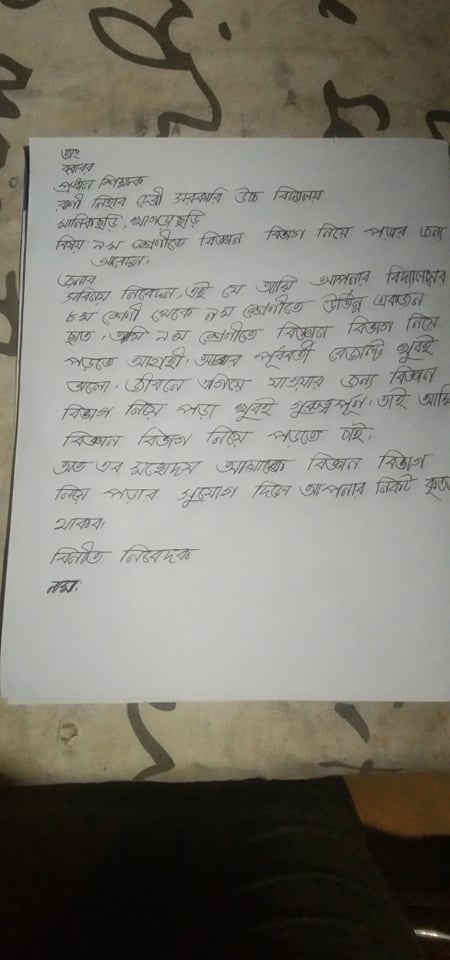 তাং
বরাবর
প্রধান শিক্ষক
রাণী নিহার দেবী সরকারি উচ্চ বিদ্যালয়
মানিকছড়ি, খাগড়াছড়ি
বিষয় ৯ম শ্রেণীতে বিজ্ঞান বিভাগ নিয়ে পড়ার জন্য
আবেদন।
জনাব
সবিনয় নিবেদন, এই যে আমি আপনার বিদ্যালয়ের
৮ম শ্রেণী থেকে ৯ম শ্রেণীতে উর্ত্তিন্ন একজন
ছাত্র। আমি ৯ম শ্রেণীতে বিজ্ঞান বিভাগ নিয়ে
পড়তে আগ্রহী। আমার পূর্ববর্তী রেজাল্ট খুবই
ভালো। জীবনে এগিয়ে যাওয়ার জন্য বিজ্ঞান
বিভাগ নিয়ে পড়া খুবই গুরুত্বপূর্ন। তাই আমি
বিজ্ঞান বিভাগ নিয়ে পড়তে চাই।
অত এব মহোদয় আমাকে বিজ্ঞান বিভাগ
নিয়ে পড়ার সুযোগ দিলে আপনার নিকট
থাকব।
বিনীত নিবেদক
নাম: